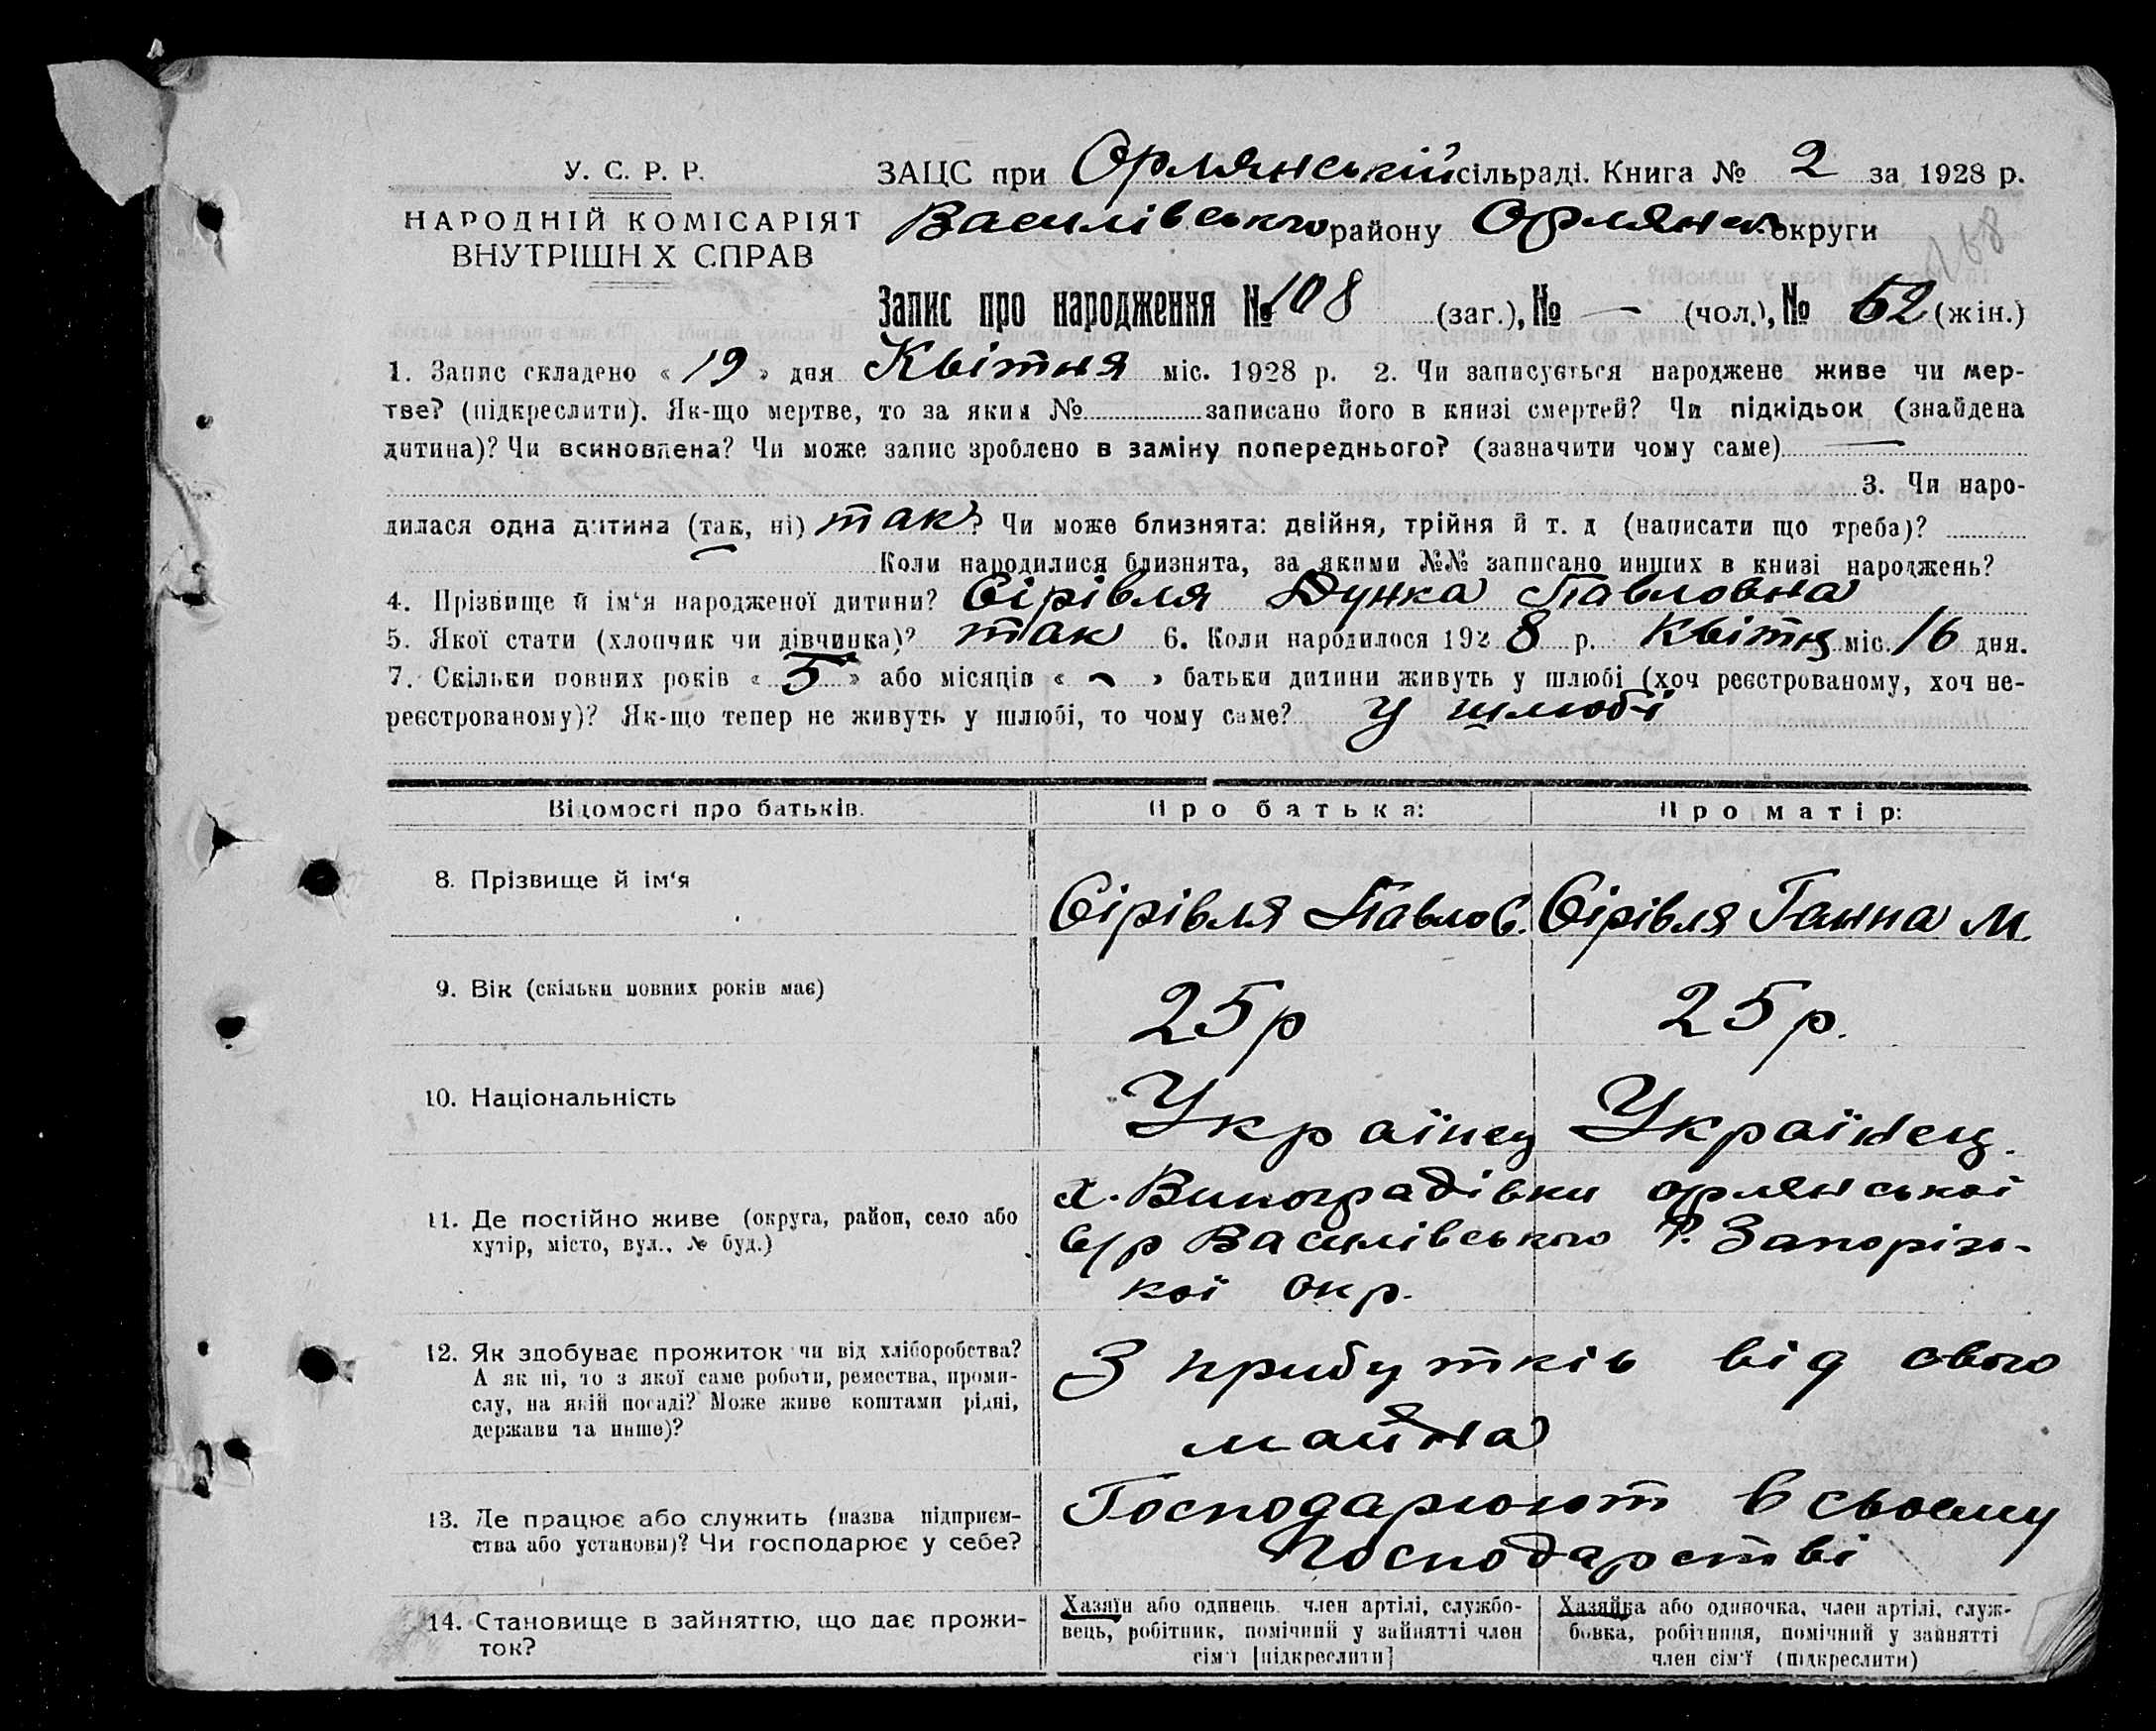 У. С. Р. Р.
НАРОДНІЙ КОМІСАРІЯТ
ВНУТРІШН Х СПРАВ
ЗАЦС при Орлянській сільраді. Книга № 2 за 1928 р.
Василівського району Орлянск округи
168
Запис про народження № 108 (заг.), № — (чол.), № 62 (жін.)
1. Запис складено « 19 » дня Квітня міс. 1928 р. 2. Чи записується народжене живе чи мер-
тве? (підкреслити). Як-що мертве, то за яким № записано його в книзі смертей? Чи підкідьок (знайдена
дитина)? Чи всиновлена? Чи може запис зроблено в заміну попереднього? (зазначити чому саме) —
3. Чи наро-
дилася одна дитина (так, ні) так? Чи може близнята: двійня, трійня й т. д (написати що треба)?
Коли народилися близнята, за якими №№ записано инших в книзі народжень?
4. Прізвище й ім‘я народженої дитини? Сірівля Дунка Павловна
5. Якої стати (хлопчик чи дівчинка)? так 6. Коли народилося 192 8 р. Квітня міс. 16 дня.
7. Скільки повних років « 5 » або місяців « - » батьки дитини живуть у шлюбі (хоч реєстрованому, хоч не-
реєстрованому)? Як-що тепер не живуть у шлюбі, то чому саме? У шлюбі
Відомості про батьків. Про батька: Про матір:
8. Прізвище й ім‘я Сірівля Павло С. Сірівля Ганна М.
9. Вік (скільки повних років має) 25 р 25 р.
10. Національність Українец Українец.
11. Де постійно живе (округа, район, село або
хутір, місто, вул., № буд.)
х. Виноградівки орлянської
с/р Василівського Р. Запорізь-
кої окр.
12. Як здобуває прожиток чи від хліборобства?
А як ні, то з якої саме роботи, ремества, проми-
слу, на якій посаді? Може живе коштами рідні,
держави та инше)?
З прибутків від свого
майна
13. Де працює або служить (назва підприєм-
ства або установи)? Чи господарює у себе?
Господарюют в своєму
господарстві
14. Становище в зайняттю, що дає прожи-
ток?
Хазяїн або одинець, член артілі, службо-
вець, робітник, помічний у зайнятті член
сім‘ї [підкреслити]
Хазяйка або одиночка, член артілі, служ-
бовка, робітниця, помічний у зайнятті
член сім‘ї (підкреслити)